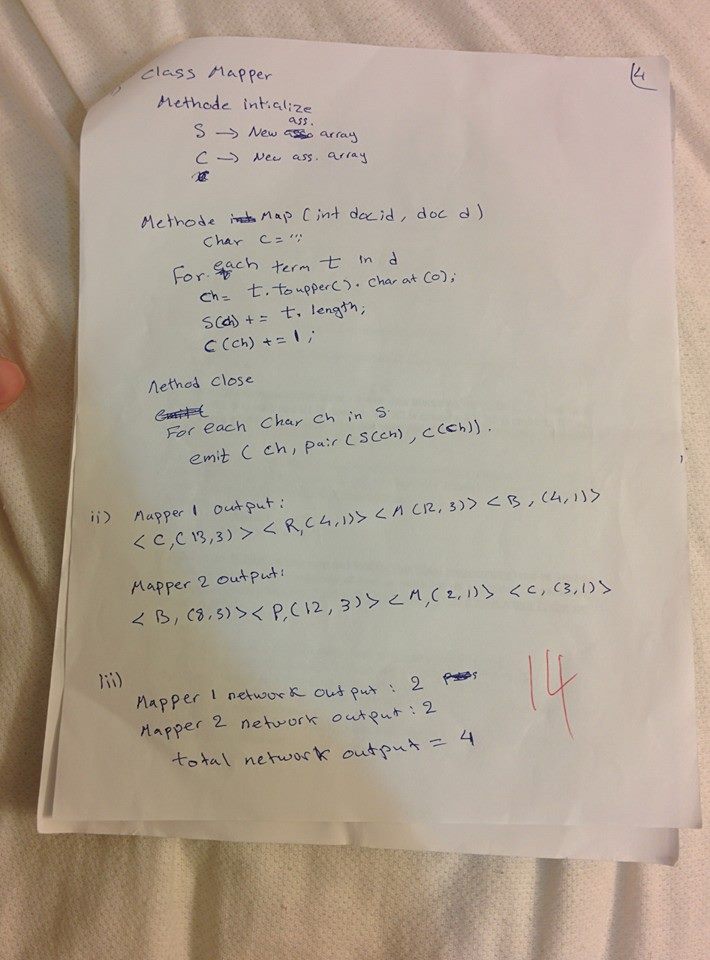 4
class Mapper
Methode intialize
S → New ass. array
C → New ass. array
Methode Map (int docid, doc d)
Char C = '';
For each term t in d
ch = t.toupper().charat(0);
S(ch) += t.length;
C(ch) += 1;
Method close
For each char ch in S
emit (ch, pair(S(ch), C(ch)).
ii) Mapper 1 output:
<C,(13,3)> <R,(4,1)> <M(12,3)> <B,(4,1)>
Mapper 2 output:
<B,(8,3)> <P,(12,3)> <M,(2,1)> <C,(3,1)>
iii)
Mapper 1 network output: 2
Mapper 2 network output: 2
total network output = 4
14